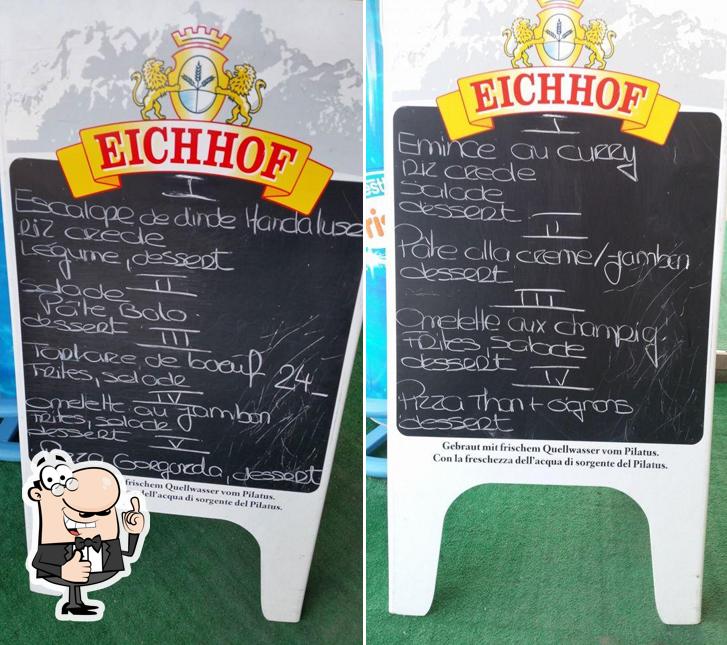 EICHHOF
I
Escalope de dinde Handaluse
riz creole
Légume, dessert
II
salade
Pâte Bolo
dessert
III
Tartare de boeuf 24.-
Frites, salade
IV
omelette au jambon
Frites, salade
dessert
V
Pizza Gorgonda, dessert
frischem Quellwasser vom Pilatus.
dell'acqua di sorgente del Pilatus.
EICHHOF
I
Emince au curry
riz creole
salade
dessert
II
Pâte alla creme/jambon
dessert
III
Omelette aux champig.
Frites, salade
dessert
IV
Pizza Thon + oignons
dessert
Gebraut mit frischem Quellwasser vom Pilatus.
Con la freschezza dell'acqua di sorgente del Pilatus.